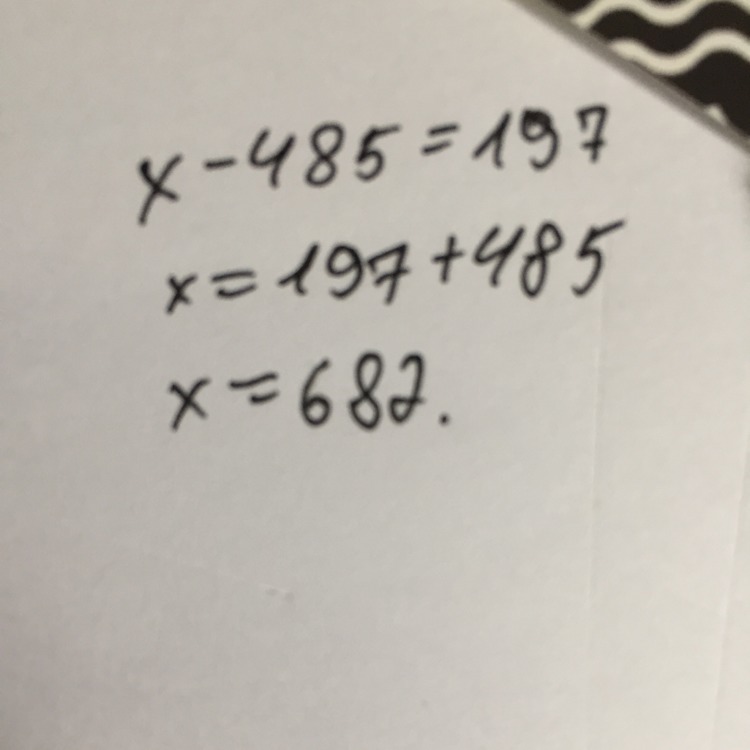 x - 485 = 197
x = 197 + 485
x = 682.